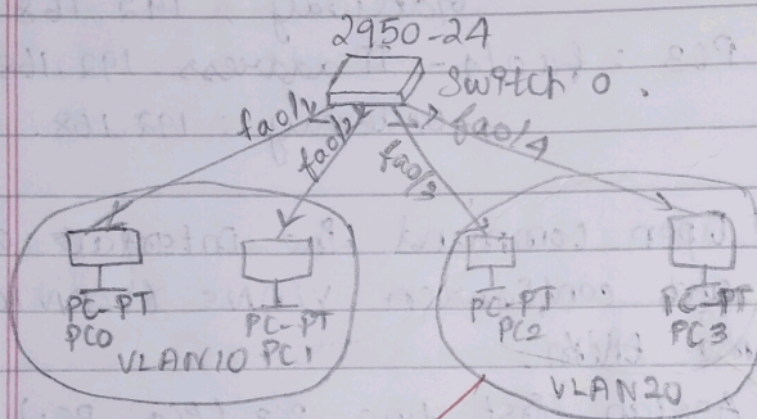 2950-24
Switch 0.
fa0/1
fa0/2
fa0/3
fa0/4
PC-PT
PC0
PC-PT
PC1
VLAN10
PC-PT
PC2
PC-PT
PC3
VLAN20